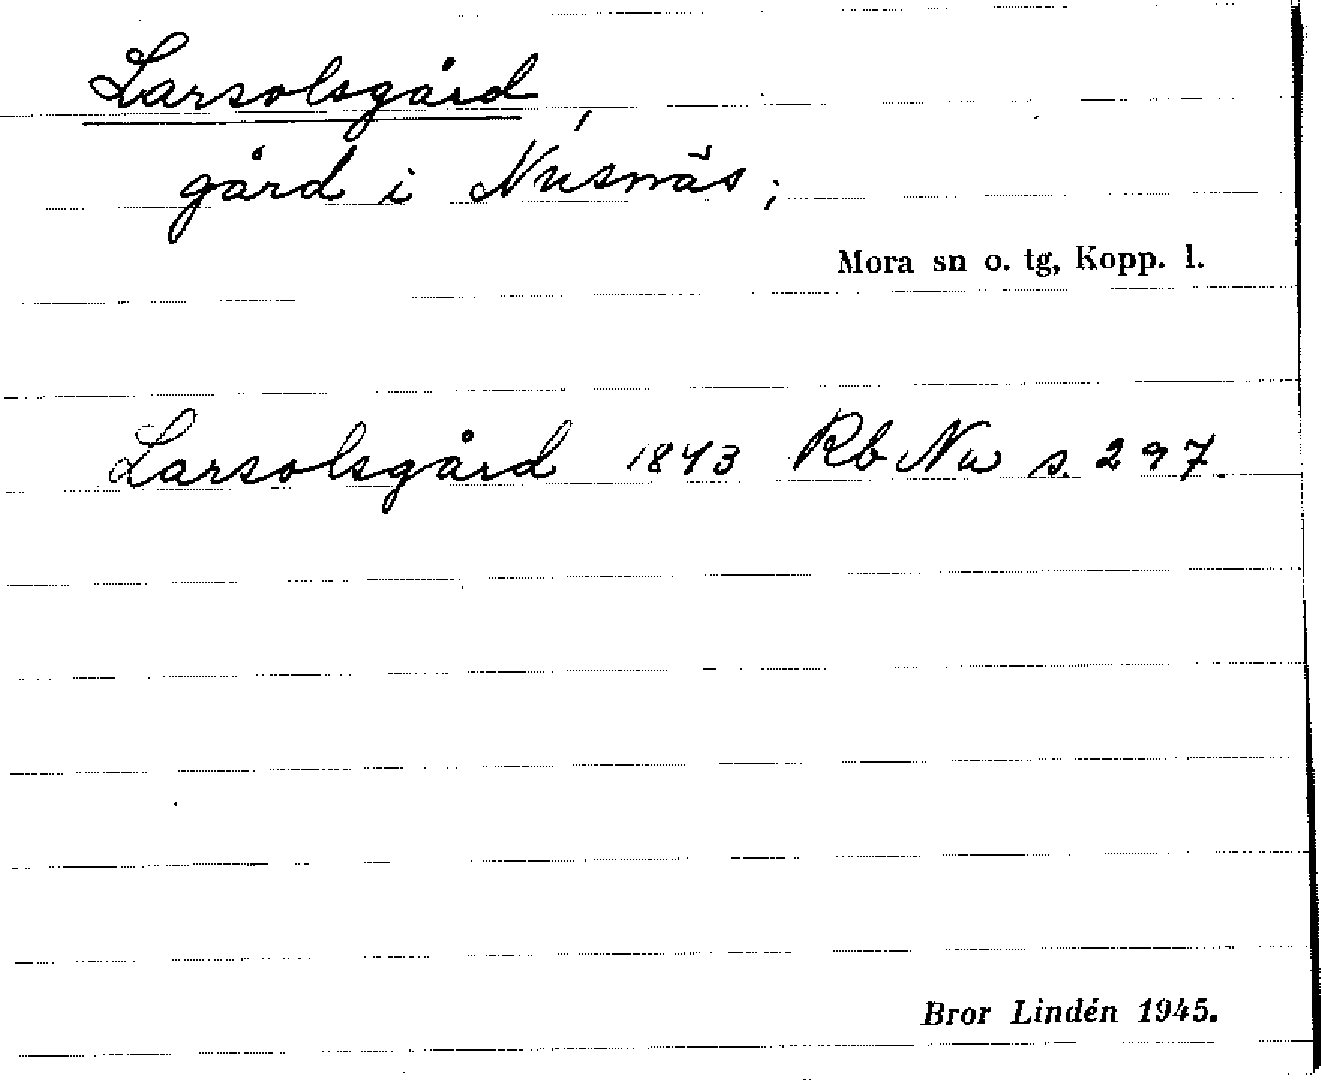 Larsolsgård,
gård i Nusnäs;
Mora sn o. tg, Kopp. l.
Larsolsgård 1843 Rb Nu s. 297.
Bror Lindén 1945.